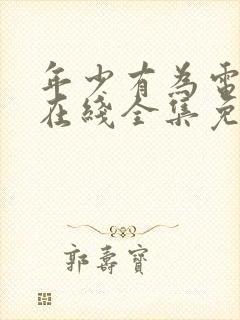 年少有為電
在綫全集免
郭壽寶